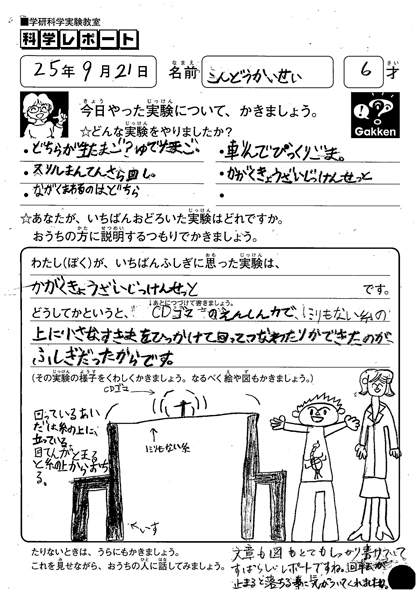 ■学研科学実験教室
科学レポート
25年9月21日
名前
なまえ
こんどうかいせい
6才
さい
今日やった実験について、かきましょう。
☆どんな実験をやりましたか?
Gakken
・どちらが生たまご?ゆでたまご。
・車んでびっくりごま。
・かがくきょうざいじっけんせっと
・ながくまわるのはどちら
☆あなたが、いちばんおどろいた実験はどれですか。
おうちの方に説明するつもりでかきましょう。
わたし(ぼく)が、いちばんふしぎに思った実験は、
かがくきょうざいじっけんせっと です。
↓あとにつづけて書きましょう。
どうしてかというと、CDゴマのえんしん力で、にりもない糸の
上に小さなすき間をひっかけて回ってつなわたりができたのが
ふしぎだったからです。
(その実験の様子をくわしくかきましょう。なるべく絵や図もかきましょう。)
CDゴマ
回っているあい
だは糸の上に、
立っている。
回てんがとまる
と糸の上からおち
る。
↑にりもない糸
←いす
たりないときは、うらにもかきましょう。
これを見せながら、おうちの人に話してみましょう。
文章も図もとてもしっかり書けていて
すばらしいレポートですね。回転が
止まると落ちる事に気がついてくれましたね。